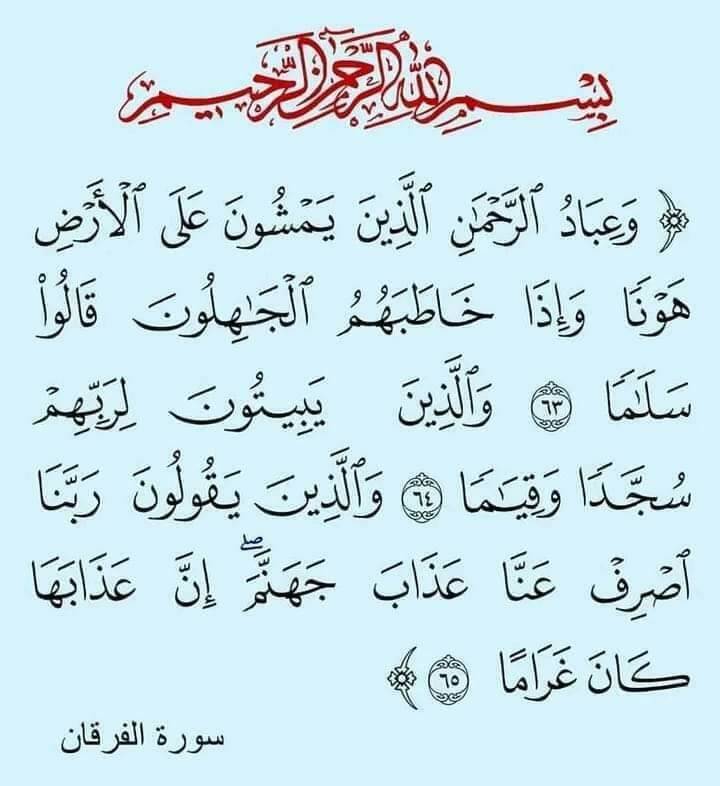 بِسْمِ اللَّهِ الرَّحْمَٰنِ الرَّحِيمِ
﴿ وَعِبَادُ ٱلرَّحْمَٰنِ ٱلَّذِينَ يَمْشُونَ عَلَى ٱلْأَرْضِ
هَوْنًا وَإِذَا خَاطَبَهُمُ ٱلْجَٰهِلُونَ قَالُوا۟
سَلَٰمًا ٦٣ وَٱلَّذِينَ يَبِيتُونَ لِرَبِّهِمْ
سُجَّدًا وَقِيَٰمًا ٦٤ وَٱلَّذِينَ يَقُولُونَ رَبَّنَا
ٱصْرِفْ عَنَّا عَذَابَ جَهَنَّمَ ۖ إِنَّ عَذَابَهَا
كَانَ غَرَامًا ٦٥ ﴾
سورة الفرقان